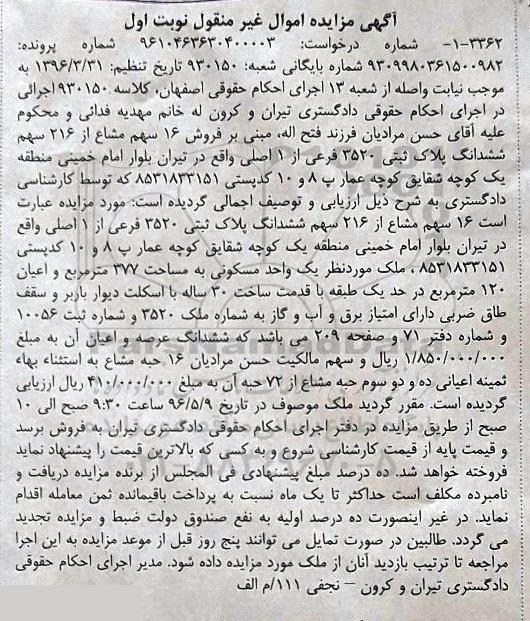 آگهی مزایده اموال غیر منقول نوبت اول
۱-۳۳۶۲- شماره درخواست: ۹۶۱۰۴۶۳۶۳۰۴۰۰۰۰۳ شماره پرونده:
۹۳۰۹۹۸۰۳۶۱۵۰۰۹۸۲ شماره بایگانی شعبه: ۹۳۰۱۵۰ تاریخ تنظیم: ۱۳۹۶/۳/۳۱ به
موجب نیابت واصله از شعبه ۱۳ اجرای احکام حقوقی اصفهان، کلاسه ۹۳۰۱۵۰ اجرائی
در اجرای احکام حقوقی دادگستری تیران و کرون له خانم مهدیه فدائی و محکوم
علیه آقای حسن مرادیان فرزند فتح اله، مبنی بر فروش ۱۶ سهم مشاع از ۲۱۶ سهم
ششدانگ پلاک ثبتی ۳۵۲۰ فرعی از ۱ اصلی واقع در تیران بلوار امام خمینی منطقه
یک کوچه شقایق کوچه عمار پ ۸ و ۱۰ کدپستی ۸۵۳۱۸۳۳۱۵۱ که توسط کارشناسی
دادگستری به شرح ذیل ارزیابی و توصیف اجمالی گردیده است: مورد مزایده عبارت
است ۱۶ سهم مشاع از ۲۱۶ سهم ششدانگ پلاک ثبتی ۳۵۲۰ فرعی از ۱ اصلی واقع
در تیران بلوار امام خمینی منطقه یک کوچه شقایق کوچه عمار پ ۸ و ۱۰ کدپستی
۸۵۳۱۸۳۳۱۵۱ ، ملک موردنظر یک واحد مسکونی به مساحت ۳۷۷ مترمربع و اعیان
۱۲۰ مترمربع در حد یک طبقه با قدمت ساخت ۳۰ ساله با اسکلت دیوار باربر و سقف
طاق ضربی دارای امتیاز برق و آب و گاز به شماره ملک ۳۵۲۰ و شماره ثبت ۱۰۰۵۶
و شماره دفتر ۷۱ و صفحه ۲۰۹ می باشد که ششدانگ عرصه و اعیان آن به مبلغ
۱/۸۵۰/۰۰۰/۰۰۰ ریال و سهم مالکیت حسن مرادیان ۱۶ حبه مشاع به استثناء بهاء
ثمینه اعیانی ده و دو سوم حبه مشاع از ۷۲ حبه آن به مبلغ ۴۱۰/۰۰۰/۰۰۰ ریال ارزیابی
گردیده است. مقرر گردید ملک موصوف در تاریخ ۹۶/۵/۹ ساعت ۹:۳۰ صبح الی ۱۰
صبح از طریق مزایده در دفتر اجرای احکام حقوقی دادگستری تیران به فروش برسد
و قیمت پایه از قیمت کارشناسی شروع و به کسی که بالاترین قیمت را پیشنهاد نماید
فروخته خواهد شد. ده درصد مبلغ پیشنهادی فی المجلس از برنده مزایده دریافت و
نامبرده مکلف است حداکثر تا یک ماه نسبت به پرداخت باقیمانده ثمن معامله اقدام
نماید. در غیر اینصورت ده درصد اولیه به نفع صندوق دولت ضبط و مزایده تجدید
می گردد. طالبین در صورت تمایل می توانند پنج روز قبل از موعد مزایده به این اجرا
مراجعه تا ترتیب بازدید آنان از ملک مورد مزایده داده شود. مدیر اجرای احکام حقوقی
دادگستری تیران و کرون – نجفی ۱۱۱/م الف